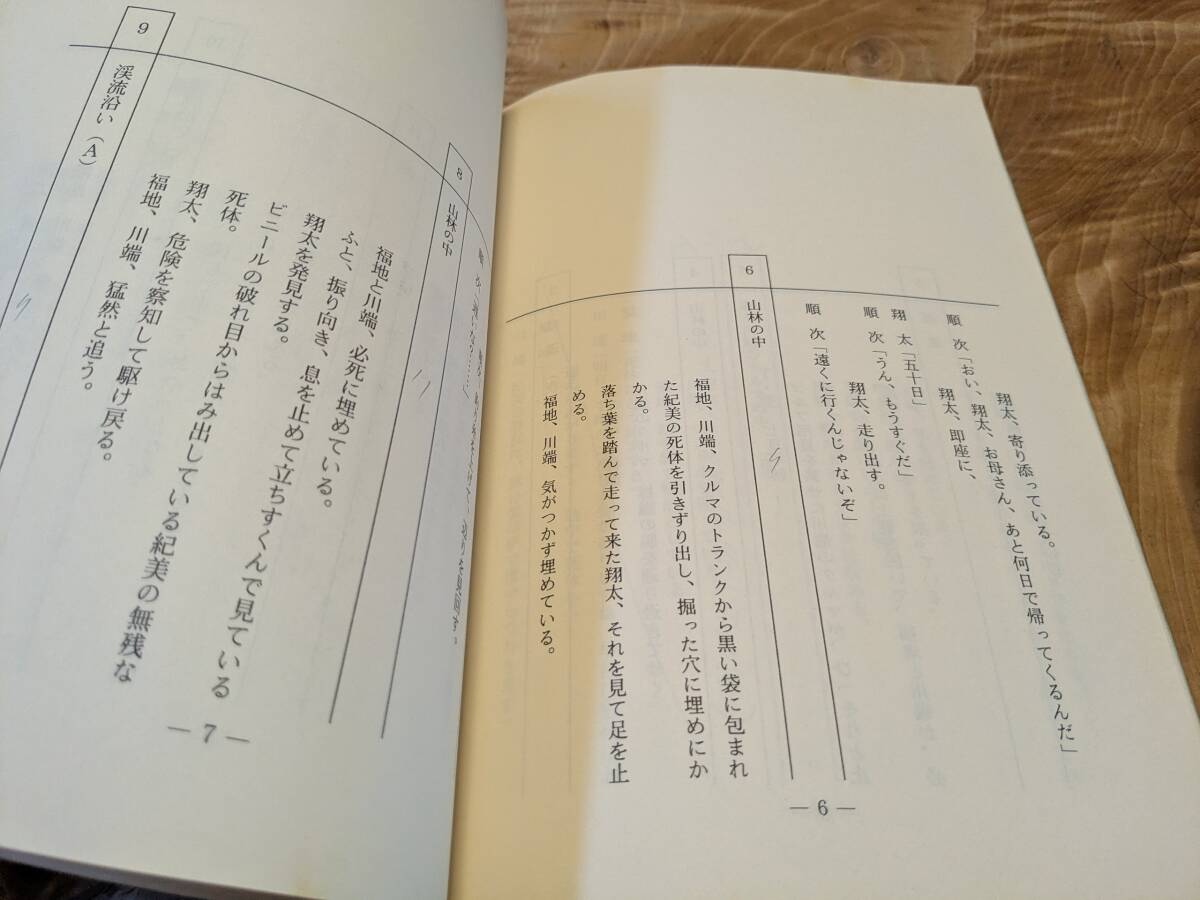 翔太、寄り添っている。
順　次「おい、翔太、お母さん、あと何日で帰ってくるんだ」
翔太、即座に、
翔　太「五十日」
順　次「うん、もうすぐだ」
翔太、走り出す。
順　次「遠くに行くんじゃないぞ」
6　山林の中
福地、川端、クルマのトランクから黒い袋に包まれ
た紀美の死体を引きずり出し、掘った穴に埋めにか
かる。
落ち葉を踏んで走って来た翔太、それを見て足を止
める。
福地、川端、気がつかず埋めている。
— 6 —
8　山林の中
福地と川端、必死に埋めている。
ふと、振り向き、息を止めて立ちすくんで見ている
翔太を発見する。
ビニールの破れ目からはみ出している紀美の無残な
死体。
翔太、危険を察知して駆け戻る。
福地、川端、猛然と追う。
9　渓流沿い（A）
— 7 —